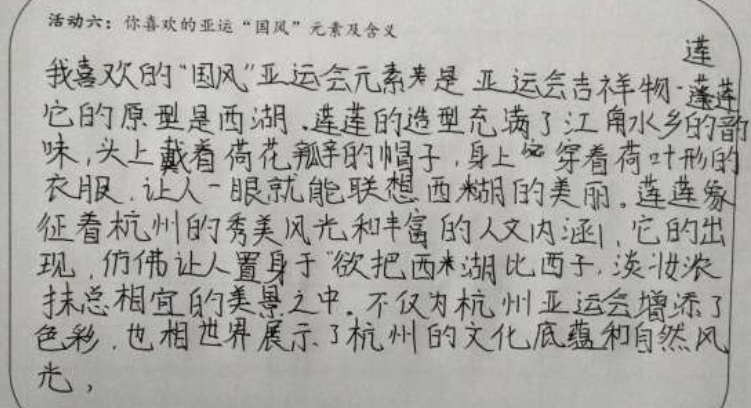 活动六：你喜欢的亚运“国风”元素及含义
莲
我喜欢的“国风”亚运会元素是亚运会吉祥物-莲莲
它的原型是西湖.莲莲的造型充满了江角水乡的韵
味,头上戴着荷花瓣的帽子,身上穿着荷叶形的
衣服.让人一眼就能联想西湖的美丽。莲莲象
征着杭州的秀美风光和丰富的人文内涵,它的出
现,仿佛让人置身于“欲把西湖比西子.淡妆浓
抹总相宜的美景之中。不仅为杭州亚运会增添了
色彩.也相世界展示了杭州的文化底蕴和自然风
光,